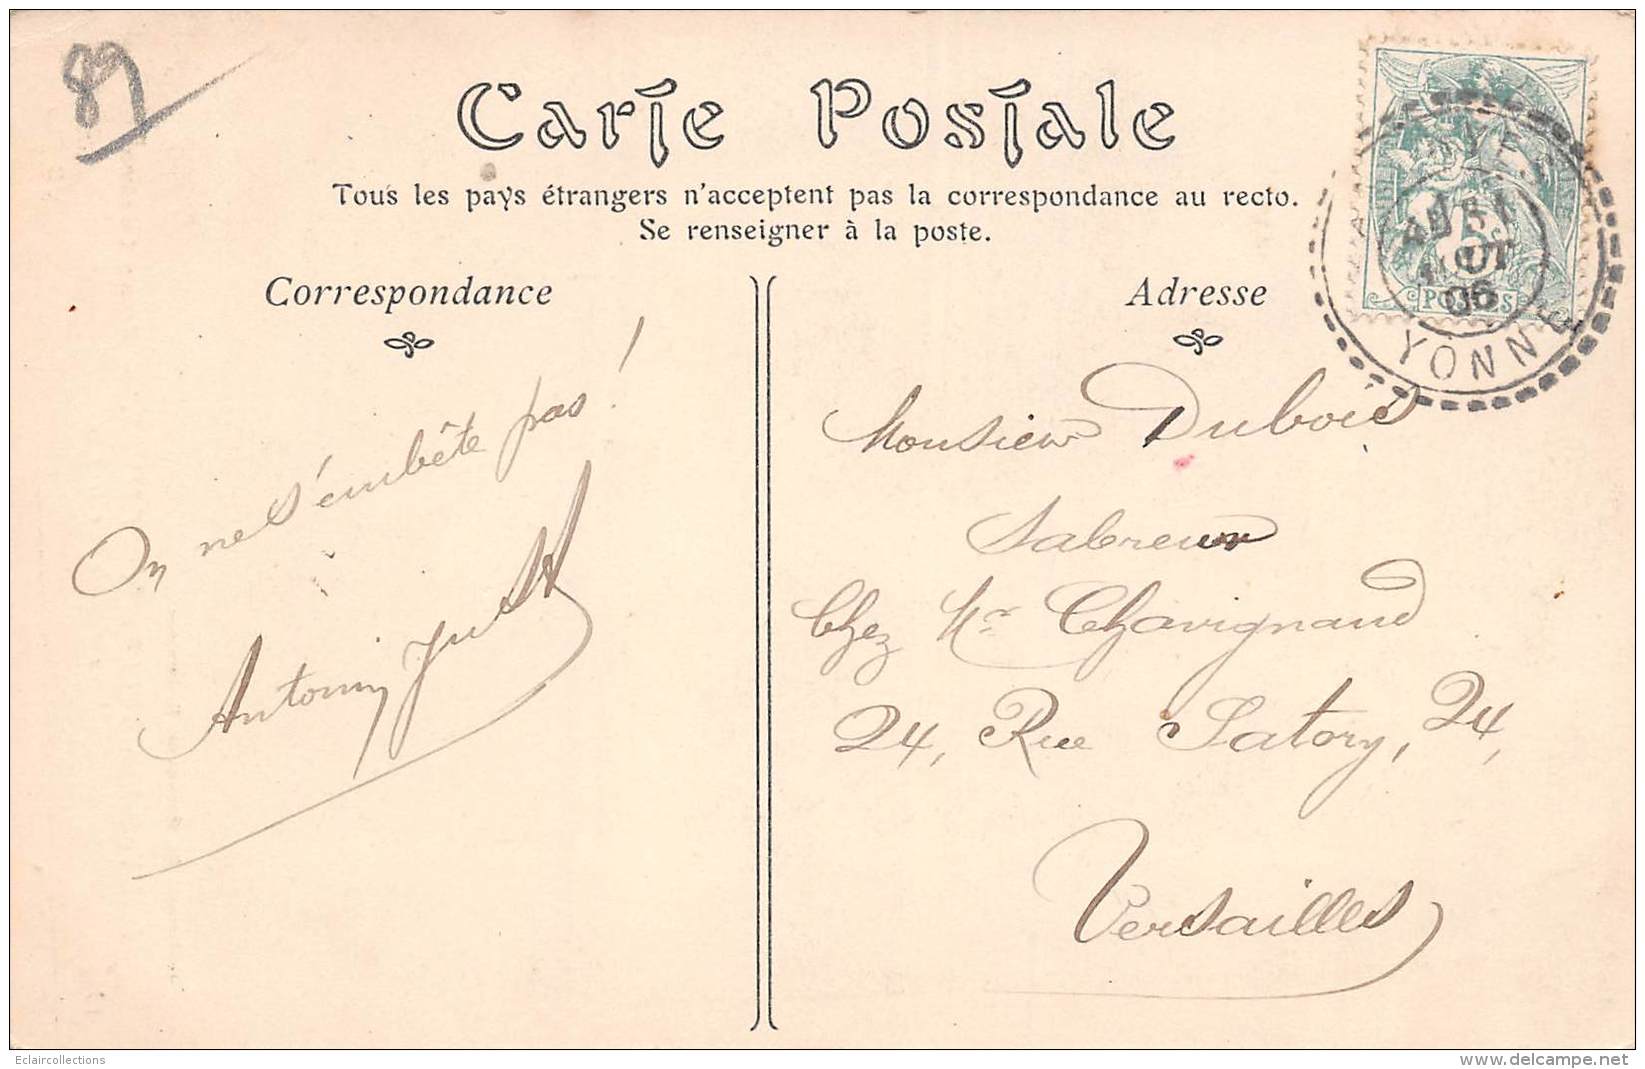 89
Carte Postale
Tous les pays étrangers n'acceptent pas la correspondance au recto.
Se renseigner à la poste.
Correspondance
On ne s'embête pas!
Antonin Just
Adresse
Monsieur Dubois
Sabreur
Chez Mr Chavignaud
24, Rue Satory, 24,
Versailles
5
POSTES
31
AOUT
06
YONNE
Eclaircollections
www.delcampe.net